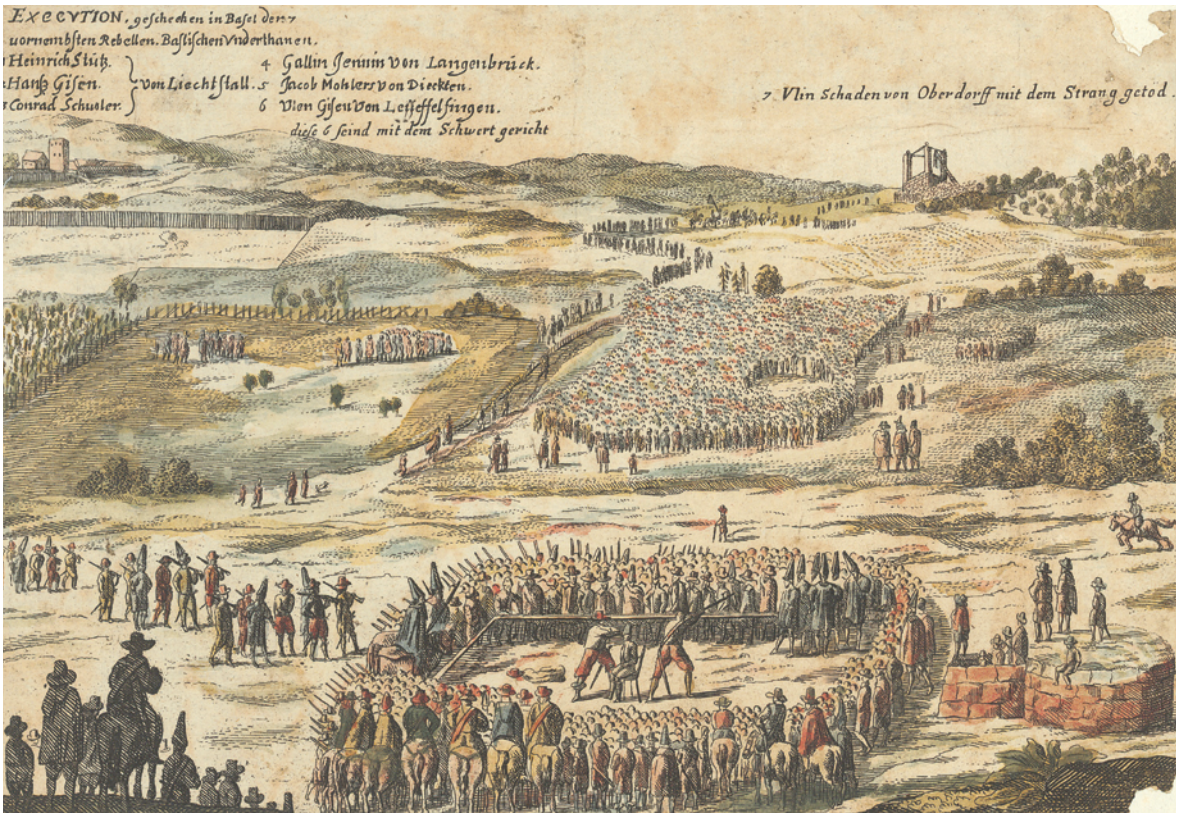 EXECVTION, geschechen in Basel der 7
vornembsten Rebellen. Baslischen Vnderthanen.
1 Heinrich Stutz.
2 Hanß Gisen. von Liechstall.
3 Conrad Schuoler.
4 Gallin Jennin von Langenbruck.
5 Jacob Mohlers von Dieckten.
6 Vlen Gisen von
diese 6 seind mit dem Schwert gericht
7. Vlin Schaden von Oberdorff mit dem Strang getod.